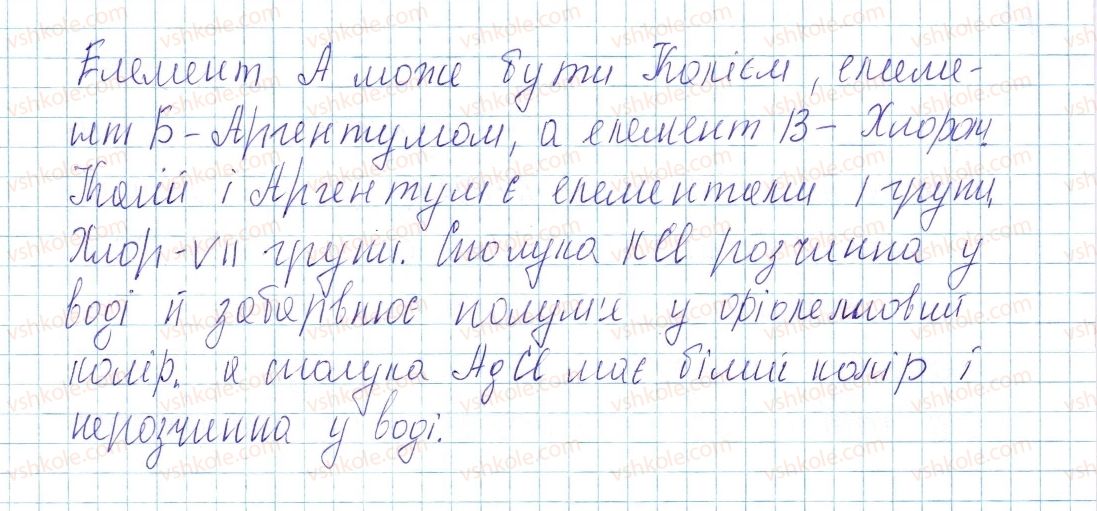 Елемент А може бути Калієм, елеме-
нт Б - Аргентумом, а елемент В - Хлором.
Калій і Аргентум є елементами I групи,
Хлор - VII групи. Сполука KCl розчинна у
воді й забарвлює полум'я у фіолетовий
колір, а сполука AgCl має білий колір і
нерозчинна у воді.